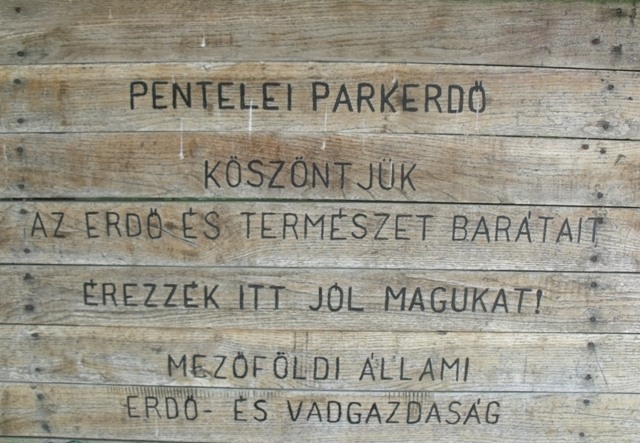 PENTELEI PARKERDŐ
KÖSZÖNTJÜK
AZ ERDŐ ÉS TERMÉSZET BARÁTAIT
ÉREZZÉK ITT JÓL MAGUKAT!
MEZŐFÖLDI ÁLLAMI
ERDŐ- ÉS VADGAZDASÁG